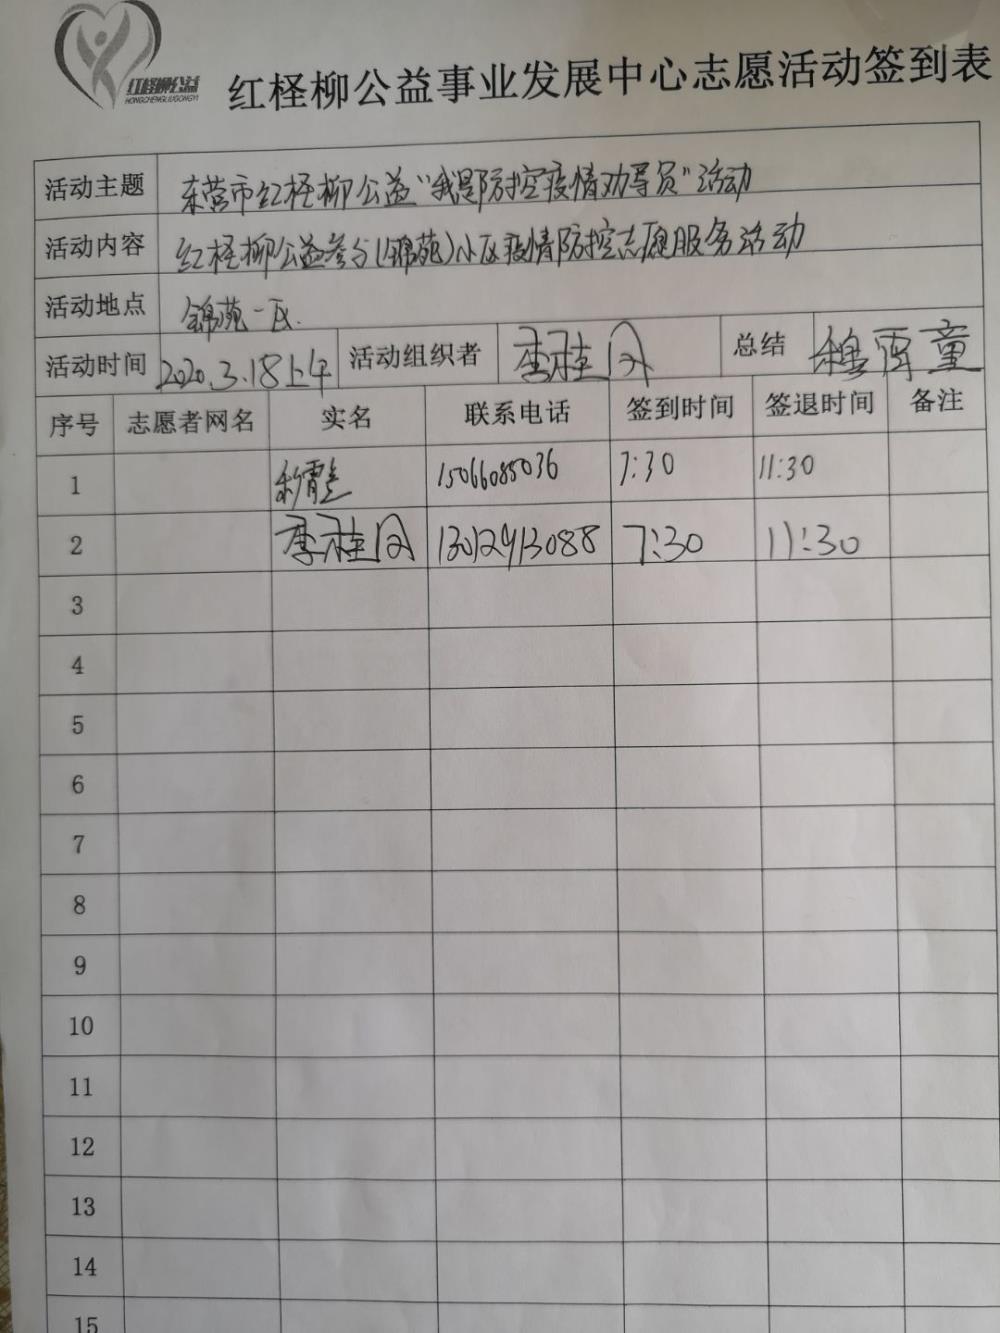 红柽柳公益
HONGCHENGLIUGONGYI
红柽柳公益事业发展中心志愿活动签到表
活动主题 东营市红柽柳公益“我是防控疫情劝导员”活动
活动内容 红柽柳公益参与(锦苑)小区疫情防控志愿服务活动
活动地点 锦苑一区.
活动时间 2020.3.18上午 活动组织者 李桂 总结 穆雪童
序号 志愿者网名 实名 联系电话 签到时间 签退时间 备注
1 15066085036 7:30 11:30
2 李桂 13012913088 7:30 11:30
3
4
5
6
7
8
9
10
11
12
13
14
15